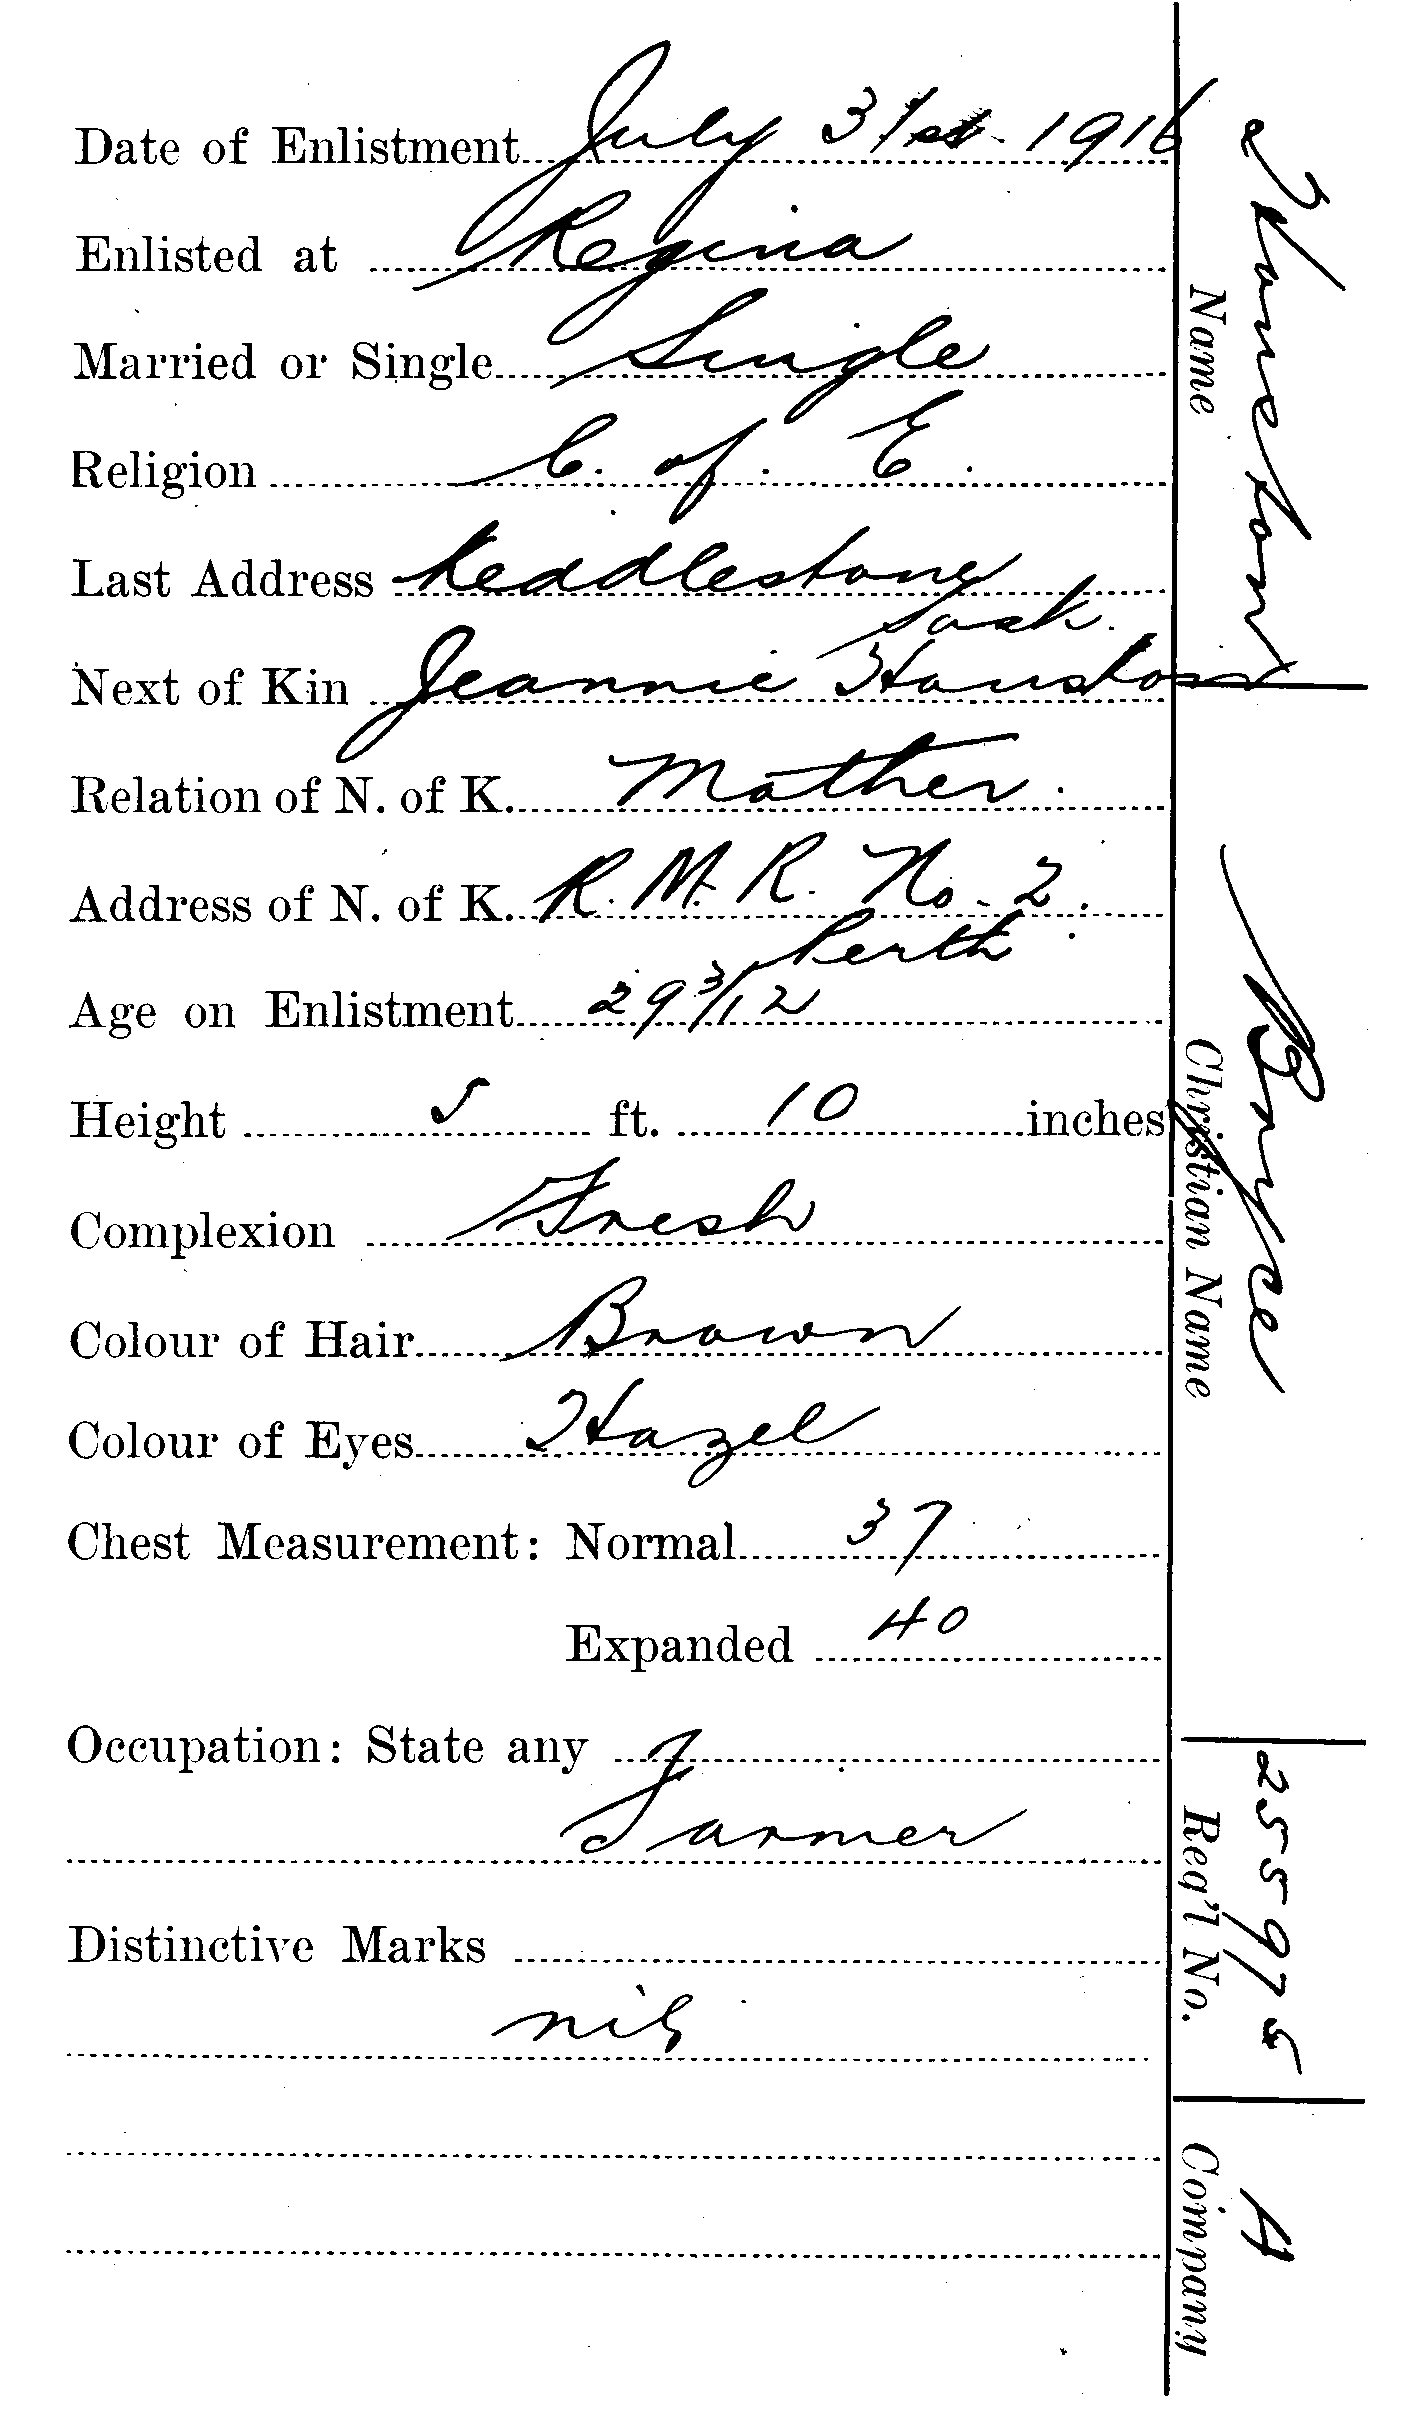 Date of Enlistment July 31st 1916
Enlisted at Regina
Married or Single Single
Religion C. of. E.
Last Address Keddlestone
Sask.
Next of Kin Jeannie Houston
Relation of N. of K. Mother.
Address of N. of K. R. M. R. No. 2.
Perth
Age on Enlistment 29 3/12
Height 5 ft. 10 inches
Complexion Fresh
Colour of Hair Brown
Colour of Eyes Hazel
Chest Measurement: Normal 37
Expanded 40
Occupation: State any
Farmer
Distinctive Marks
nil
Houston
Name
Bryce
Christian Name
255975
Reg'l No.
A
Company